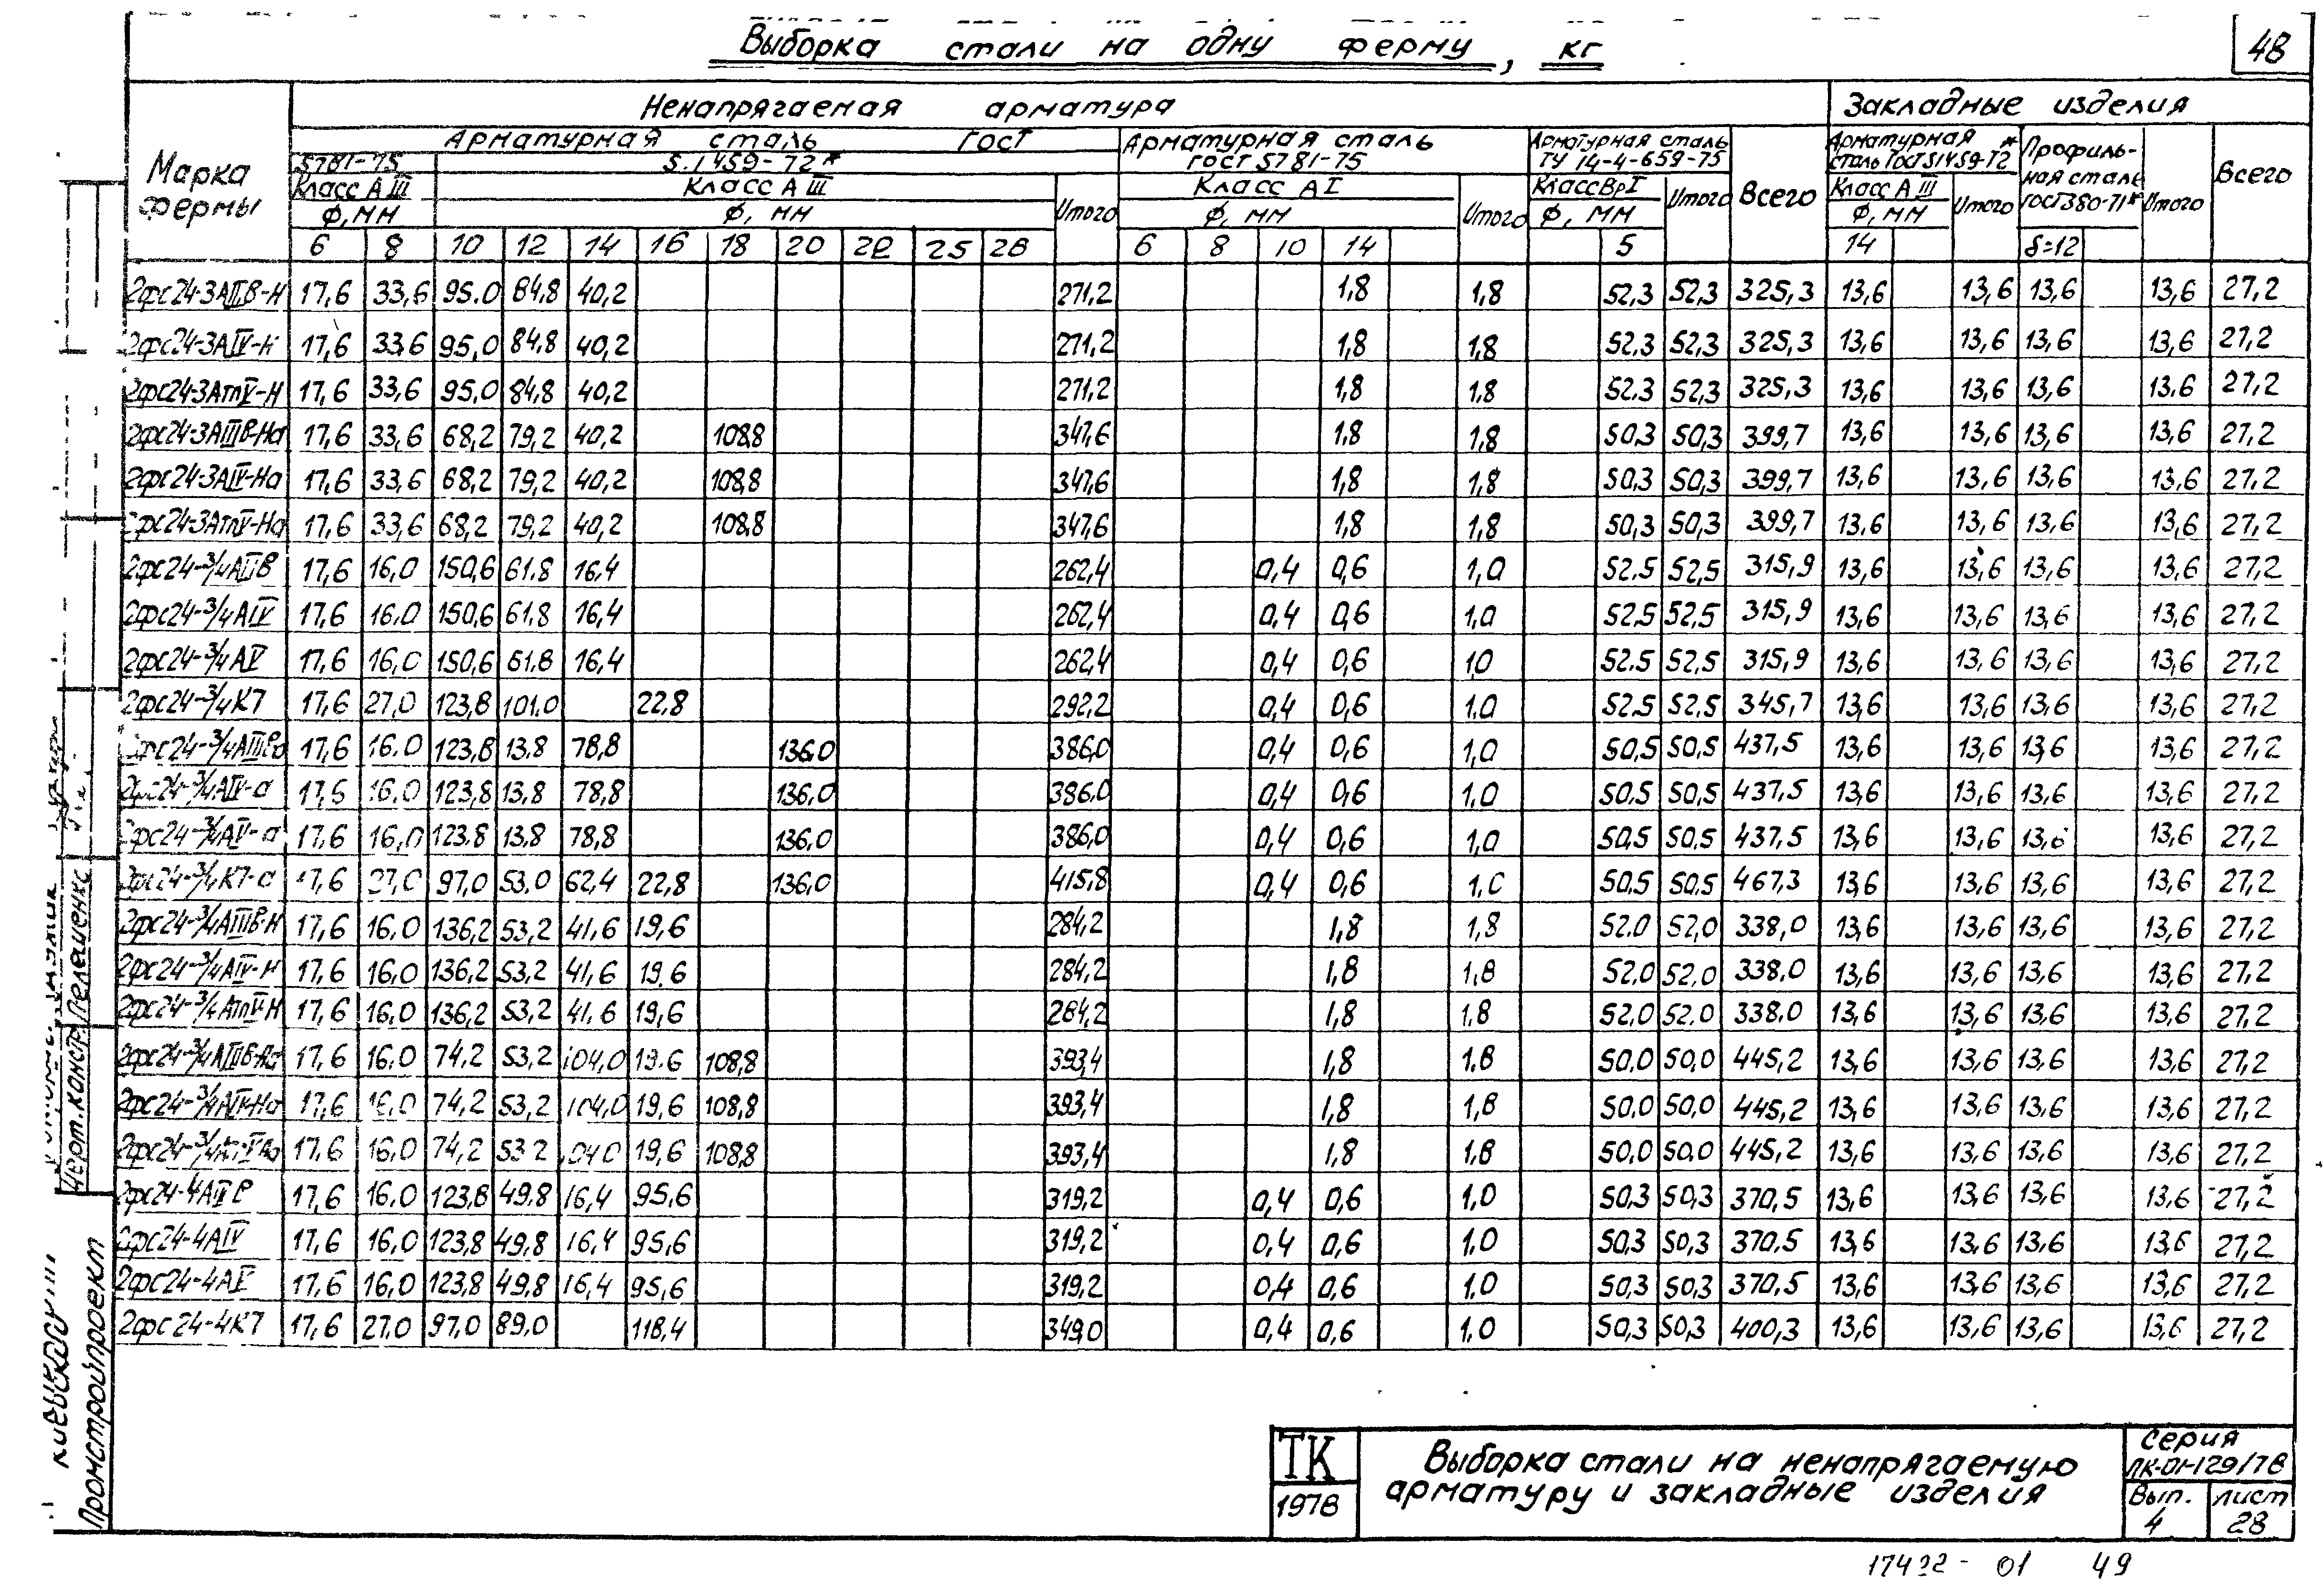 Выборка стали на одну ферму, кг
48
Марка фермы
Ненапрягаемая арматура
Закладные изделия
Арматурная сталь ГОСТ
5781-75
5.1459-72*
Арматурная сталь ГОСТ 5781-75
Арматурная сталь ТУ 14-4-659-75
Всего
Арматурная сталь ГОСТ 51459-72*
Профильная сталь ГОСТ 380-71*
Итого
Всего
Класс АIII
Класс АIII
Итого
Класс АI
Итого
Класс ВрI
Итого
Класс АIII
Итого
Ф, мм
Ф, мм
Ф, мм
Ф, мм
Ф, мм
6 8 10 12 14 16 18 20 22 25 28 6 8 10 14 5 14 δ=12
2фс24-3АIIIВ-Н 17,6 33,6 95.0 84,8 40,2 271,2 1,8 1,8 52,3 52,3 325,3 13,6 13,6 13,6 13,6 27,2
2фс24-3АIV-Н 17,6 33,6 95,0 84,8 40,2 271,2 1,8 1,8 52,3 52,3 325,3 13,6 13,6 13,6 13,6 27,2
2фс24-3АтV-Н 17,6 33,6 95,0 84,8 40,2 271,2 1,8 1,8 52,3 52,3 325,3 13,6 13,6 13,6 13,6 27,2
2фс24-3АIIIВ-На 17,6 33,6 68,2 79,2 40,2 108,8 347,6 1,8 1,8 50,3 50,3 399,7 13,6 13,6 13,6 13,6 27,2
2фс24-3АIV-На 17,6 33,6 68,2 79,2 40,2 108,8 347,6 1,8 1,8 50,3 50,3 399,7 13,6 13,6 13,6 13,6 27,2
2фс24-3АтV-На 17,6 33,6 68,2 79,2 40,2 108,8 347,6 1,8 1,8 50,3 50,3 399,7 13,6 13,6 13,6 13,6 27,2
2фс24-3/4АIIIВ 17,6 16,0 150,6 61.8 16,4 262,4 0,4 0,6 1,0 52.5 52,5 315,9 13,6 13,6 13,6 13,6 27,2
2фс24-3/4АIV 17,6 16.0 150,6 61,8 16,4 262,4 0,4 0,6 1,0 52,5 52,5 315,9 13,6 13,6 13,6 13,6 27,2
2фс24-3/4АV 17,6 16,0 150,6 61,8 16,4 262,4 0,4 0,6 1,0 52.5 52,5 315,9 13,6 13,6 13,6 13,6 27,2
2фс24-3/4К7 17,6 27,0 123,8 101,0 22,8 292,2 0,4 0,6 1,0 52,5 52,5 345,7 13,6 13,6 13,6 13,6 27,2
2фс24-3/4АIIIВа 17,6 16.0 123,8 13.8 78,8 136,0 386,0 0,4 0,6 1,0 50,5 50,5 437,5 13,6 13,6 13,6 13,6 27,2
2фс24-3/4АIV-а 17,6 16.0 123,8 13.8 78,8 136,0 386,0 0,4 0,6 1,0 50,5 50,5 437,5 13,6 13,6 13,6 13,6 27,2
2фс24-3/4АV-а 17,6 16,0 123.8 13,8 78,8 136,0 386,0 0,4 0,6 1,0 50,5 50,5 437,5 13,6 13,6 13,6 13,6 27,2
2фс24-3/4К7-а 17,6 27,0 97,0 53,0 62,4 22,8 136,0 415,8 0,4 0,6 1,0 50,5 50,5 467,3 13,6 13,6 13,6 13,6 27,2
2фс24-3/4АIIIВ-Н 17,6 16.0 136,2 53,2 41,6 19,6 284,2 1,8 1,8 52.0 52,0 338,0 13,6 13,6 13,6 13,6 27,2
2фс24-3/4АIV-Н 17,6 16.0 136,2 53,2 41,6 19.6 284,2 1,8 1,8 52.0 52.0 338.0 13,6 13,6 13,6 13,6 27,2
2фс24-3/4АтV-Н 17,6 16,0 136,2 53,2 41,6 19,6 284,2 1,8 1.8 52.0 52.0 338.0 13,6 13,6 13,6 13,6 27,2
2фс24-3/4АIIIВ-На 17,6 16,0 74,2 53,2 104,0 19.6 108,8 393,4 1,8 1.8 50.0 50,0 445,2 13,6 13,6 13,6 13,6 27,2
2фс24-3/4АIV-На 17,6 16.0 74,2 53,2 104,0 19,6 108,8 393,4 1,8 1,8 50.0 50,0 445,2 13,6 13,6 13,6 13,6 27,2
2фс24-3/4АтVНа 17,6 16,0 74,2 53 2 104 0 19,6 108,8 393,4 1,8 1,8 50,0 50,0 445,2 13,6 13,6 13,6 13,6 27,2
2фс24-4АIIIВ 17,6 16,0 123,8 49,8 16,4 95,6 319,2 0,4 0,6 1,0 50,3 50,3 370,5 13,6 13,6 13,6 13,6 27,2
2фс24-4АIV 17,6 16,0 123,8 49,8 16,4 95,6 319,2 0,4 0,6 1,0 50,3 50,3 370,5 13,6 13,6 13,6 13,6 27,2
2фс24-4АV 17,6 16,0 123,8 49,8 16,4 95,6 319,2 0,4 0,6 1,0 50,3 50,3 370,5 13,6 13,6 13,6 13,6 27,2
2фс24-4К7 17,6 27.0 97,0 89,0 118,4 349,0 0,4 0,6 1,0 50,3 50,3 400,3 13,6 13,6 13,6 13,6 27,2
Черт. констр. Пелешенко
Киевский
Промстройпроект
ТК
1978
Выборка стали на ненапрягаемую
арматуру и закладные изделия
Серия
ПК-01-129/78
Вып. Лист
4 28
17422-01 49